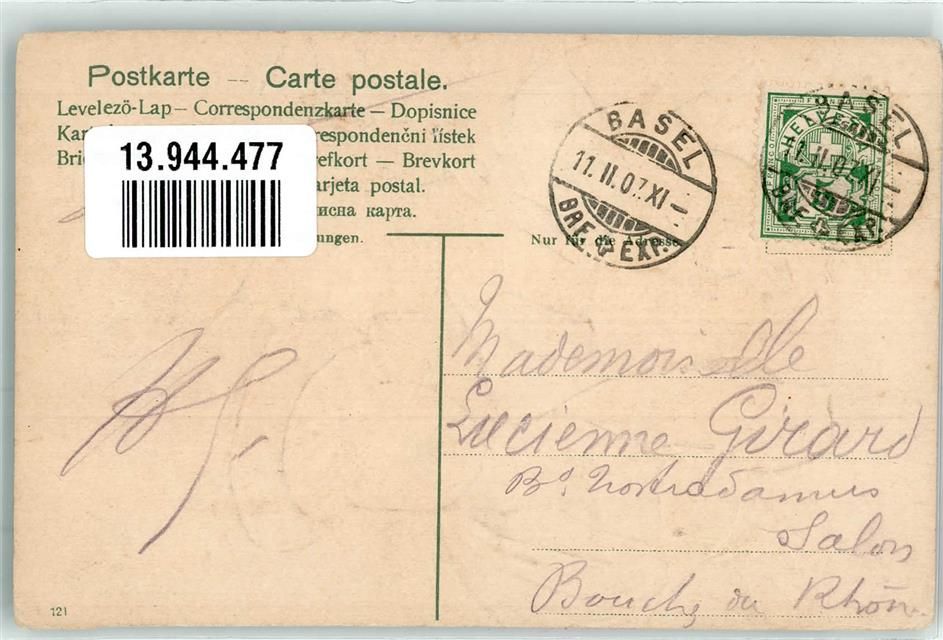 Postkarte — Carte postale.
Levelezö-Lap — Correspondenzkarte — Dopisnice
respondenční lístek
refkort — Brevkort
arjeta postal.
исна карта.
13.944.477
ungen.
Nur für die Adresse
BASEL
11.II.07.XI
BRF. EXP.
BASEL
11.II.07.XI
BRF. EXP.
HELVETIA
Mademoiselle
Lucienne Girard
Bd. Nostradamus
Salon
Bouches du Rhône
121